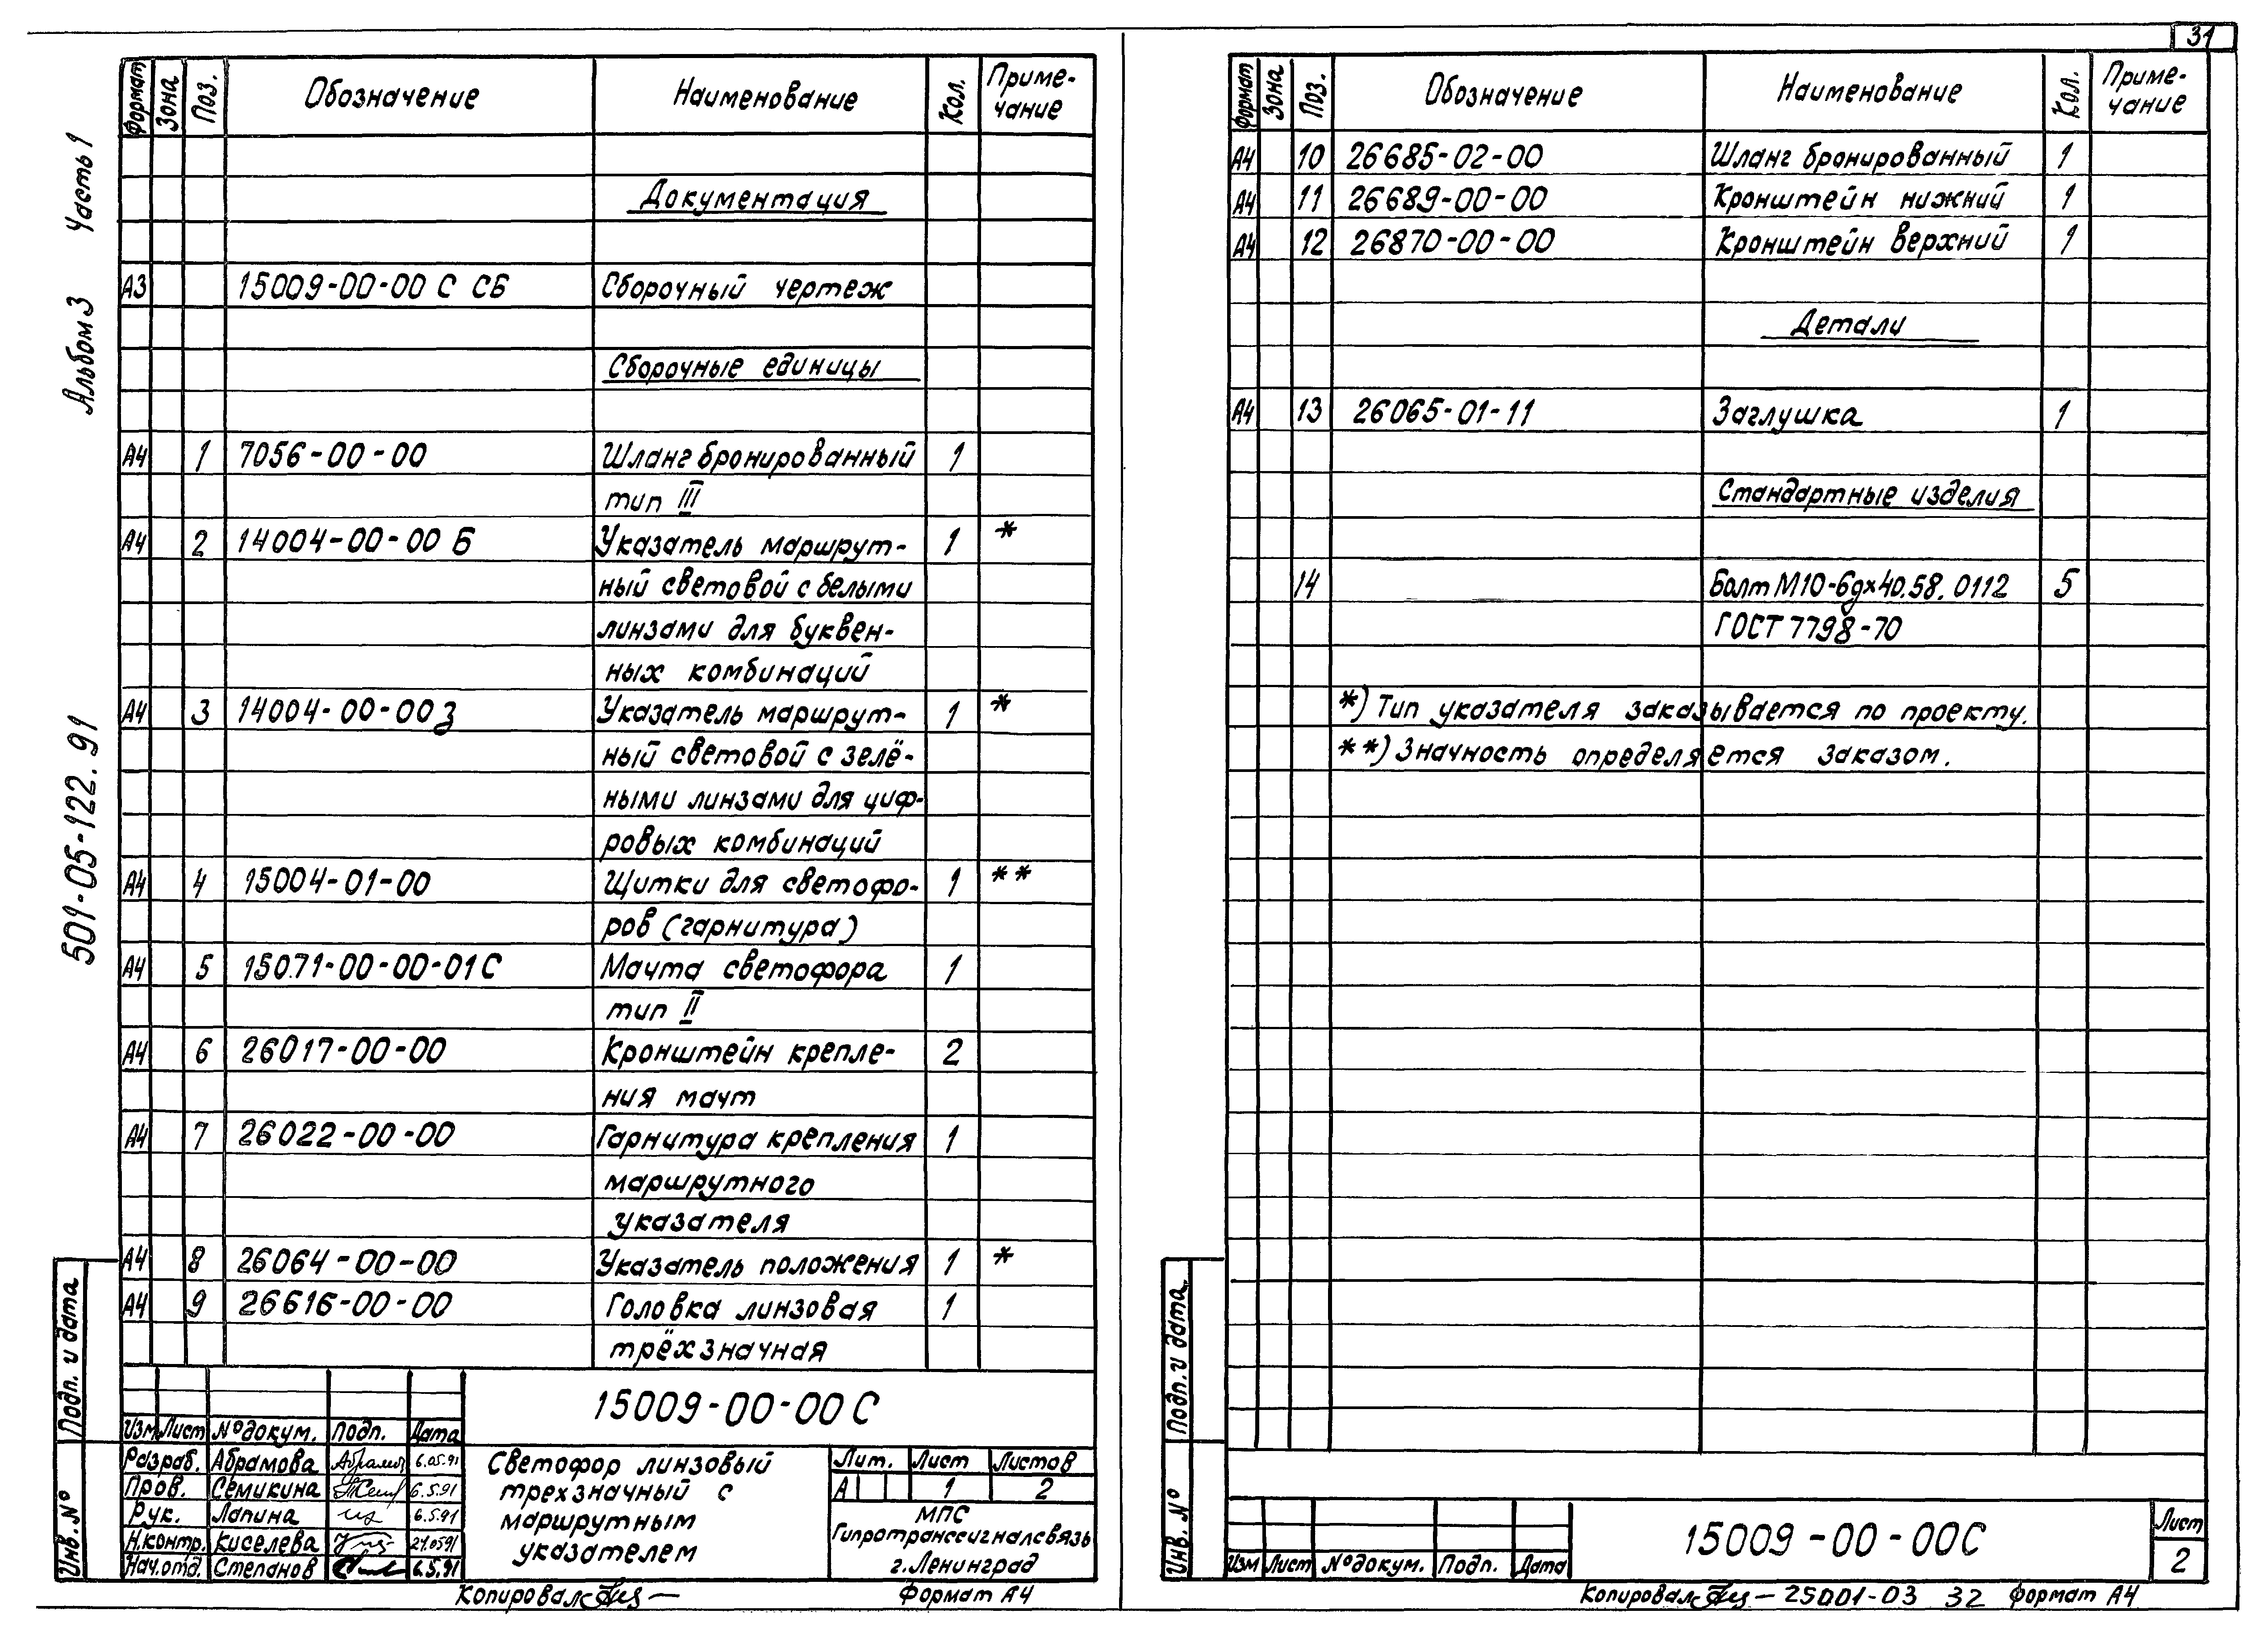 31
Альбом 3 Часть 1
501-05-122.91
Формат Зона Поз. Обозначение Наименование Кол. Приме-
чание
Документация
А3 15009-00-00 С СБ Сборочный чертеж
Сборочные единицы
А4 1 7056-00-00 Шланг бронированный 1
тип III
А4 2 14004-00-00 Б Указатель маршрут- 1 *
ный световой с белыми
линзами для буквен-
ных комбинаций
А4 3 14004-00-00 з Указатель маршрут- 1 *
ный световой с зелё-
ными линзами для циф-
ровых комбинаций
А4 4 15004-01-00 Щитки для светофо- 1 **
ров (гарнитура)
А4 5 15071-00-00-01 С Мачта светофора 1
тип II
А4 6 26017-00-00 Кронштейн крепле- 2
ния мачт
А4 7 26022-00-00 Гарнитура крепления 1
маршрутного
указателя
А4 8 26064-00-00 Указатель положения 1 *
А4 9 26616-00-00 Головка линзовая 1
трёхзначная
Подп. и дата
Инв. №
15009-00-00 С
Изм Лист № докум. Подп. Дата
Разраб. Абрамова 6.05.91
Пров. Семикина 6.5.91
Рук. Лапина 6.5.91
Н.контр. Киселева 24.05.91
Нач.отд. Степанов 6.5.91
Светофор линзовый
трехзначный с
маршрутным
указателем
Лит. Лист Листов
А 1 2
МПС
Гипротранссигналсвязь
г. Ленинград
Копировал Формат А4
Формат Зона Поз. Обозначение Наименование Кол. Приме-
чание
А4 10 26685-02-00 Шланг бронированный 1
А4 11 26689-00-00 Кронштейн нижний 1
А4 12 26870-00-00 Кронштейн верхний 1
Детали
А4 13 26065-01-11 Заглушка 1
Стандартные изделия
14 Болт М10-6gх40.58.0112 5
ГОСТ 7798-70
*) Тип указателя заказывается по проекту.
**) Значность определяется заказом.
Подп. и дата
Инв. №
Изм Лист № докум. Подп. Дата
15009-00-00С
Лист
2
Копировал 25001-03 32 Формат А4